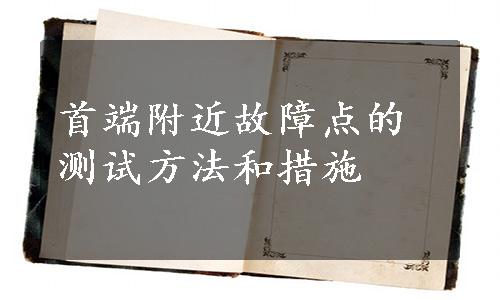 首端附近故障点的
测试方法和措施